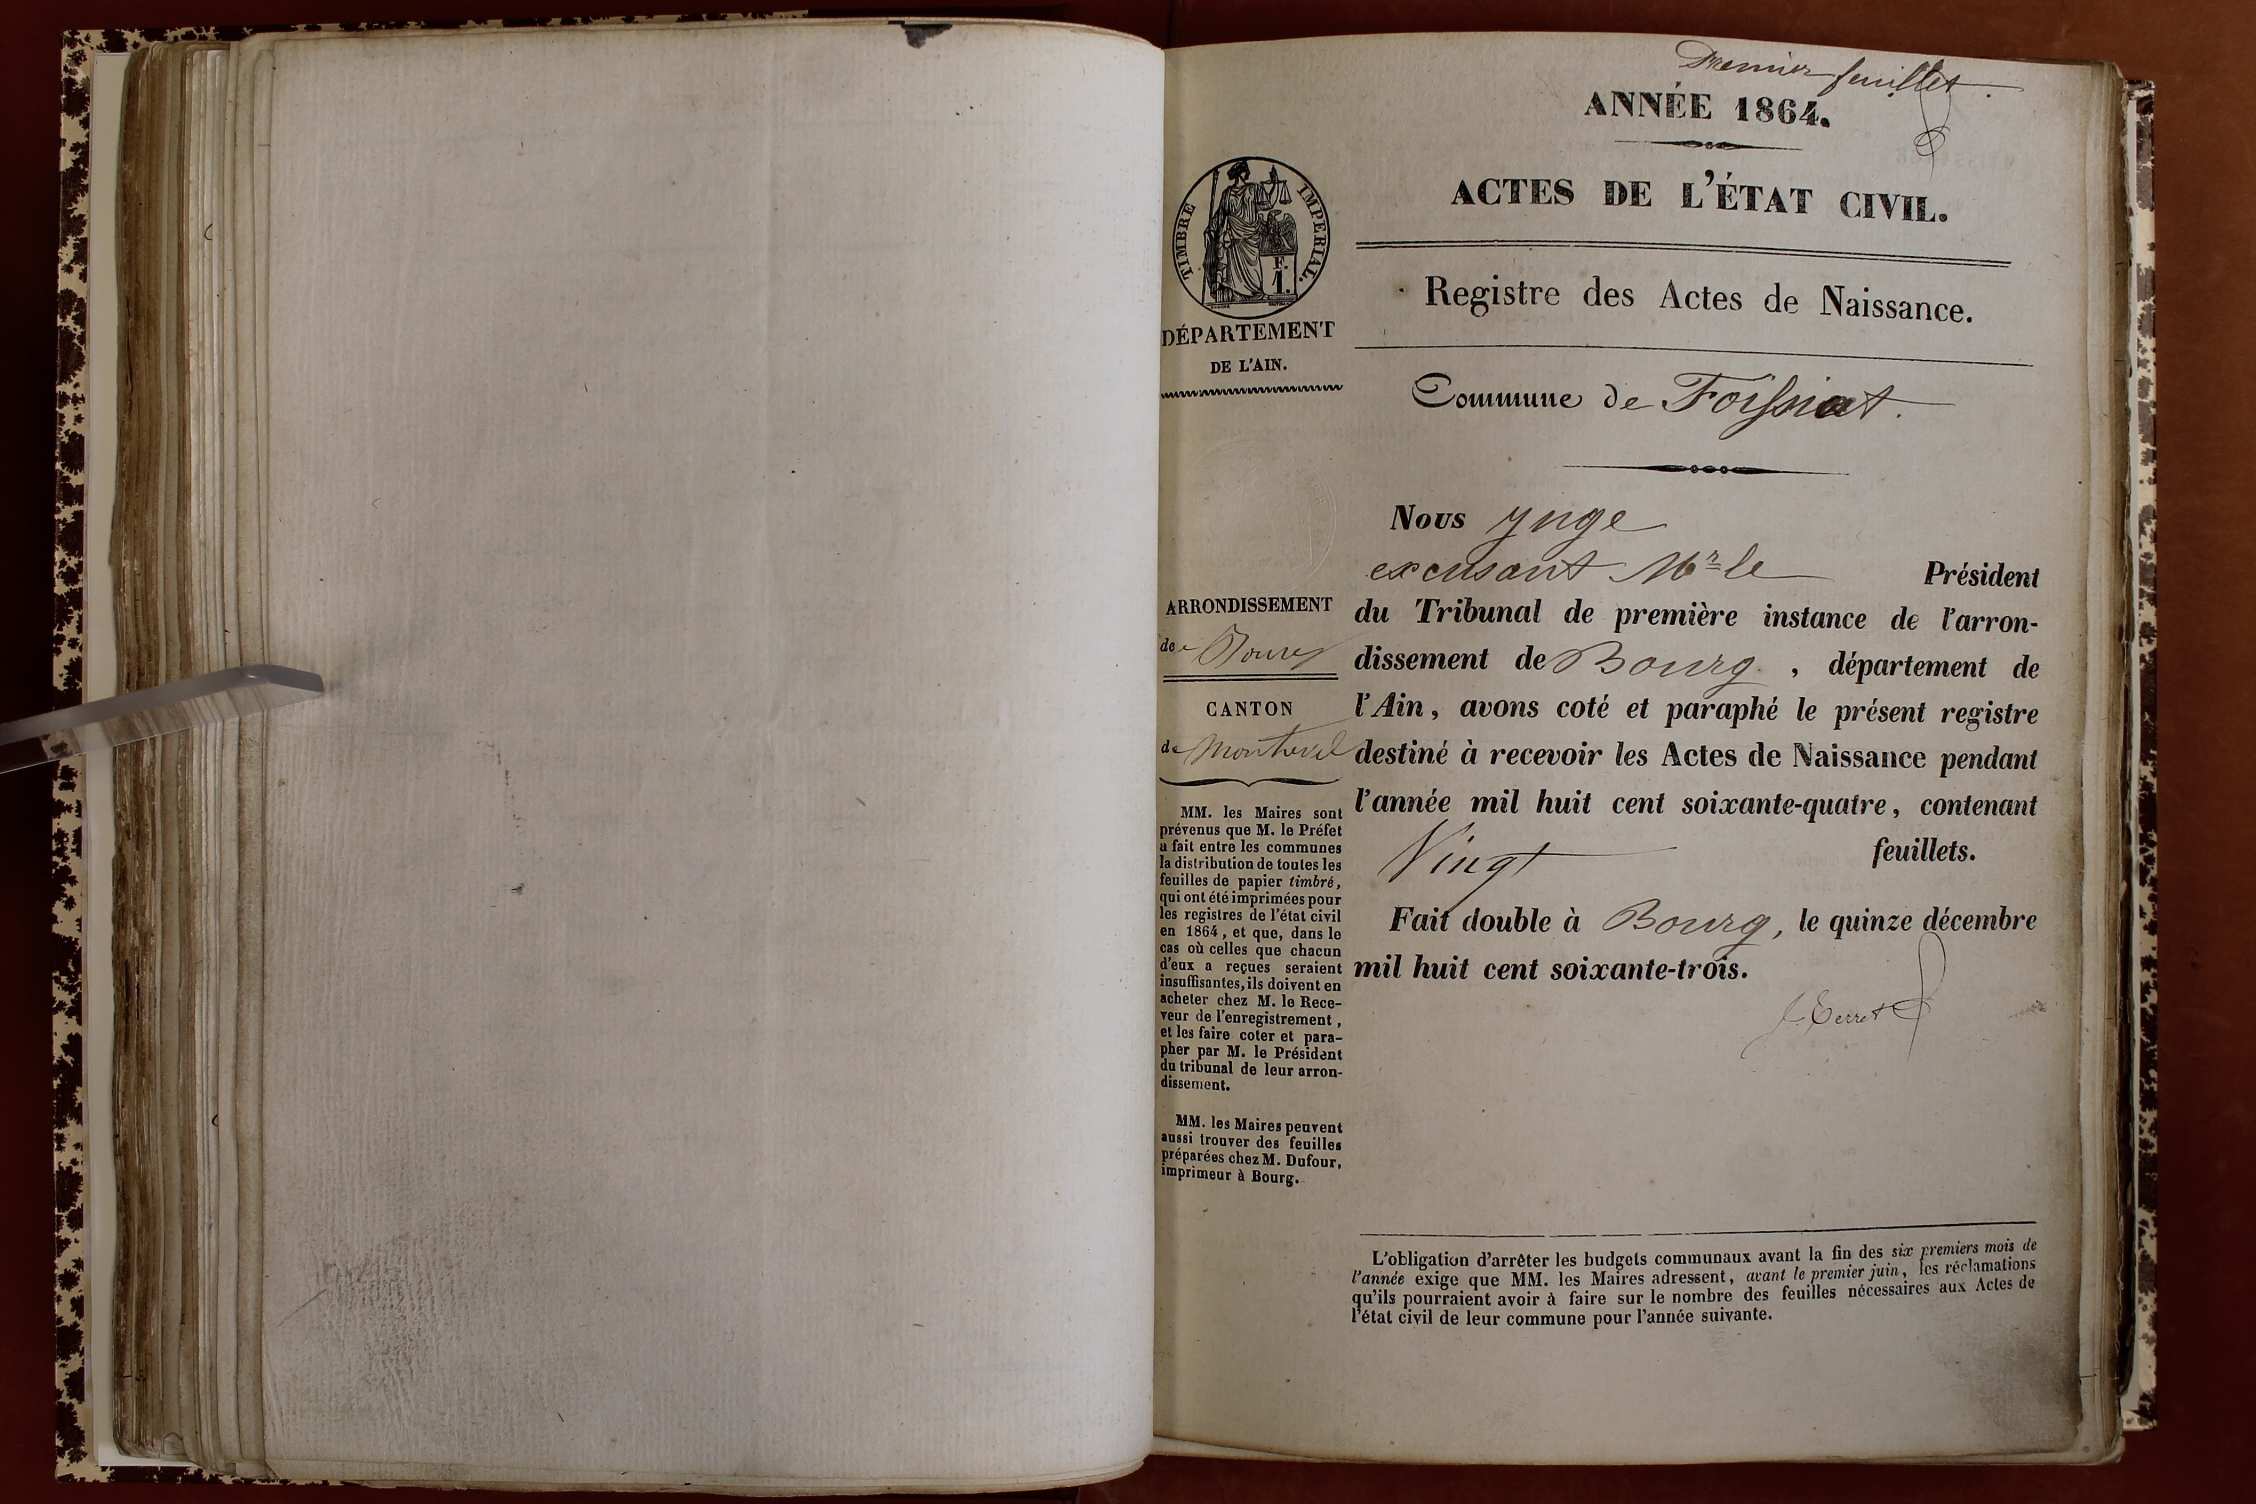 Premier feuillet.
ANNÉE 1864.
ACTES DE L'ÉTAT CIVIL.
TIMBRE IMPERIAL.
F.
1.
DÉPARTEMENT
DE L'AIN.
Registre des Actes de Naissance.
Commune de Foissiat.
ARRONDISSEMENT
de Bourg
CANTON
de Montrevel
MM. les Maires sont
prévenus que M. le Préfet
a fait entre les communes
la distribution de toutes les
feuilles de papier timbré,
qui ont été imprimées pour
les registres de l'état civil
en 1864, et que, dans le
cas où celles que chacun
d'eux a reçues seraient
insuffisantes, ils doivent en
acheter chez M. le Rece-
veur de l'enregistrement,
et les faire coter et para-
pher par M. le Président
du tribunal de leur arron-
dissement.
MM. les Maires peuvent
aussi trouver des feuilles
préparées chez M. Dufour,
imprimeur à Bourg.
Nous juge
excusant Mr le Président
du Tribunal de première instance de l'arron-
dissement de Bourg, département de
l'Ain, avons coté et paraphé le présent registre
destiné à recevoir les Actes de Naissance pendant
l'année mil huit cent soixante-quatre, contenant
Vingt feuillets.
Fait double à Bourg, le quinze décembre
mil huit cent soixante-trois.
L'obligation d'arrêter les budgets communaux avant la fin des six premiers mois de
l'année exige que MM. les Maires adressent, avant le premier juin, les réclamations
qu'ils pourraient avoir à faire sur le nombre des feuilles nécessaires aux Actes de
l'état civil de leur commune pour l'année suivante.